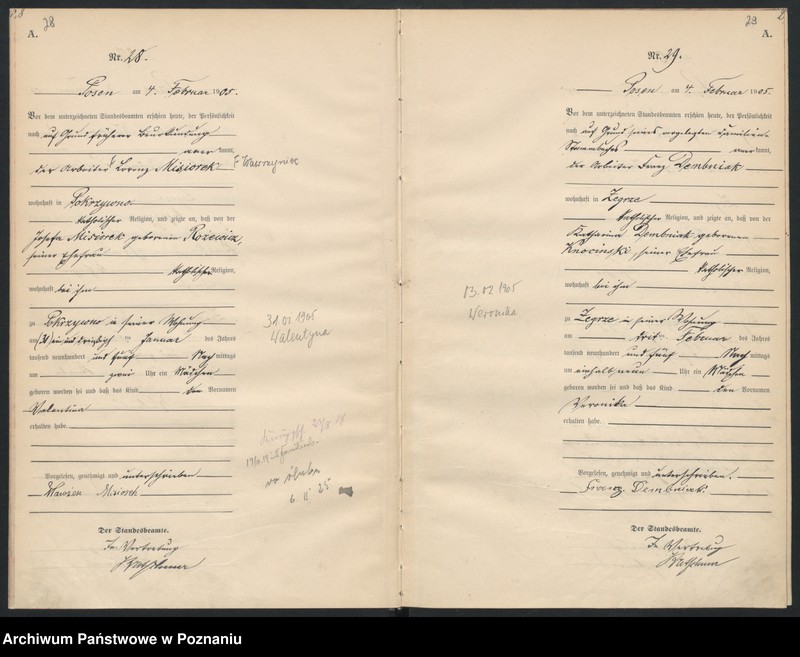 28
A.
Nr. 28.
Posen am 4. Februar 1905.
Vor dem unterzeichneten Standesbeamten erschien heute, der Persönlichkeit
nach auf Grund früherer Beurkundung
anerkannt,
der Arbeiter Lorenz Misiorek
Wawrzyniec
wohnhaft in Pokrzywno
katholischer Religion, und zeigte an, daß von der
Josefa Misiorek geborenen Rozewicz,
seiner Ehefrau
katholischer Religion,
wohnhaft bei ihm
zu Pokrzywno in seiner Wohnung
am ein und dreißig ten Januar des Jahres
tausend neunhundert und fünf Nachmittags
um zwei Uhr ein Mädchen
geboren worden sei und daß das Kind den Vornamen
Valentina
erhalten habe.
Vorgelesen, genehmigt und unterschrieben
Misiorek
Der Standesbeamte.
In Vertretung
31 01 1905
Walentyna
6 II 25
29
A.
Nr. 29.
Posen am 4. Februar 1905.
Vor dem unterzeichneten Standesbeamten erschien heute, der Persönlichkeit
nach auf Grund seines vorgelegten Familien-
Stammbuches anerkannt,
der Arbeiter Franz Dembniak
wohnhaft in Zegrze
katholischer Religion, und zeigte an, daß von der
Katharina Dembniak geborenen
Knocinski, seiner Ehefrau
katholischer Religion,
wohnhaft bei ihm
zu Zegrze in seiner Wohnung
am drit ten Februar des Jahres
tausend neunhundert und fünf Nachmittags
um einhalb neun Uhr ein Mädchen
geboren worden sei und daß das Kind den Vornamen
Veronika
erhalten habe.
Vorgelesen, genehmigt und unterschrieben.
Franz Dembniak.
Der Standesbeamte.
In Vertretung
03.02 1905
Weronika
Archiwum Państwowe w Poznaniu